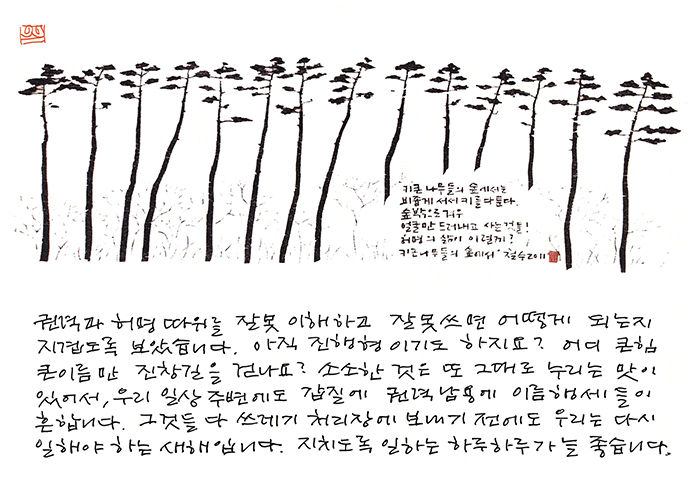 키큰 나무들의 숲에서는
비좁게 서서 키를 다툰다.
숲 밖으로 겨우
얼굴만 드러내고 사는 것들!
허명의 삶이 이럴까?
키큰나무들의 숲에서· 철수2011
권력과 허명 따위를 잘못 이해하고 잘못쓰면 어떻게 되는지
지겹도록 보았습니다. 아직 진행형이기도 하지요? 어디 큰힘
큰이름만 진창길을 걷나요? 소소한 것은 또 그대로 누리는 맛이
있어서, 우리 일상 주변에도 갑질에 권력남용에 이름행세들이
흔합니다. 그것들 다 쓰레기 처리장에 보내기 전에도 우리는 다시
일해야 하는 새해입니다. 지치도록 일하는 하루하루가 늘 좋습니다.